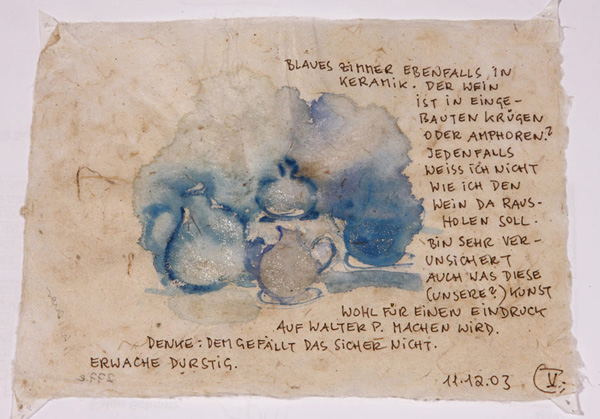 BLAUES ZIMMER EBENFALLS IN
KERAMIK. DER WEIN
IST IN EINGE-
BAUTEN KRÜGEN
ODER AMPHOREN?
JEDENFALLS
WEISS ICH NICHT
WIE ICH DEN
WEIN DA RAUS-
HOLEN SOLL.
BIN SEHR VER-
UNSICHERT
AUCH WAS DIESE
(UNSERE?) KUNST
WOHL FÜR EINEN EINDRUCK
AUF WALTER P. MACHEN WIRD.
DENKE: DEM GEFÄLLT DAS SICHER NICHT.
ERWACHE DURSTIG.
11.12.03 V.